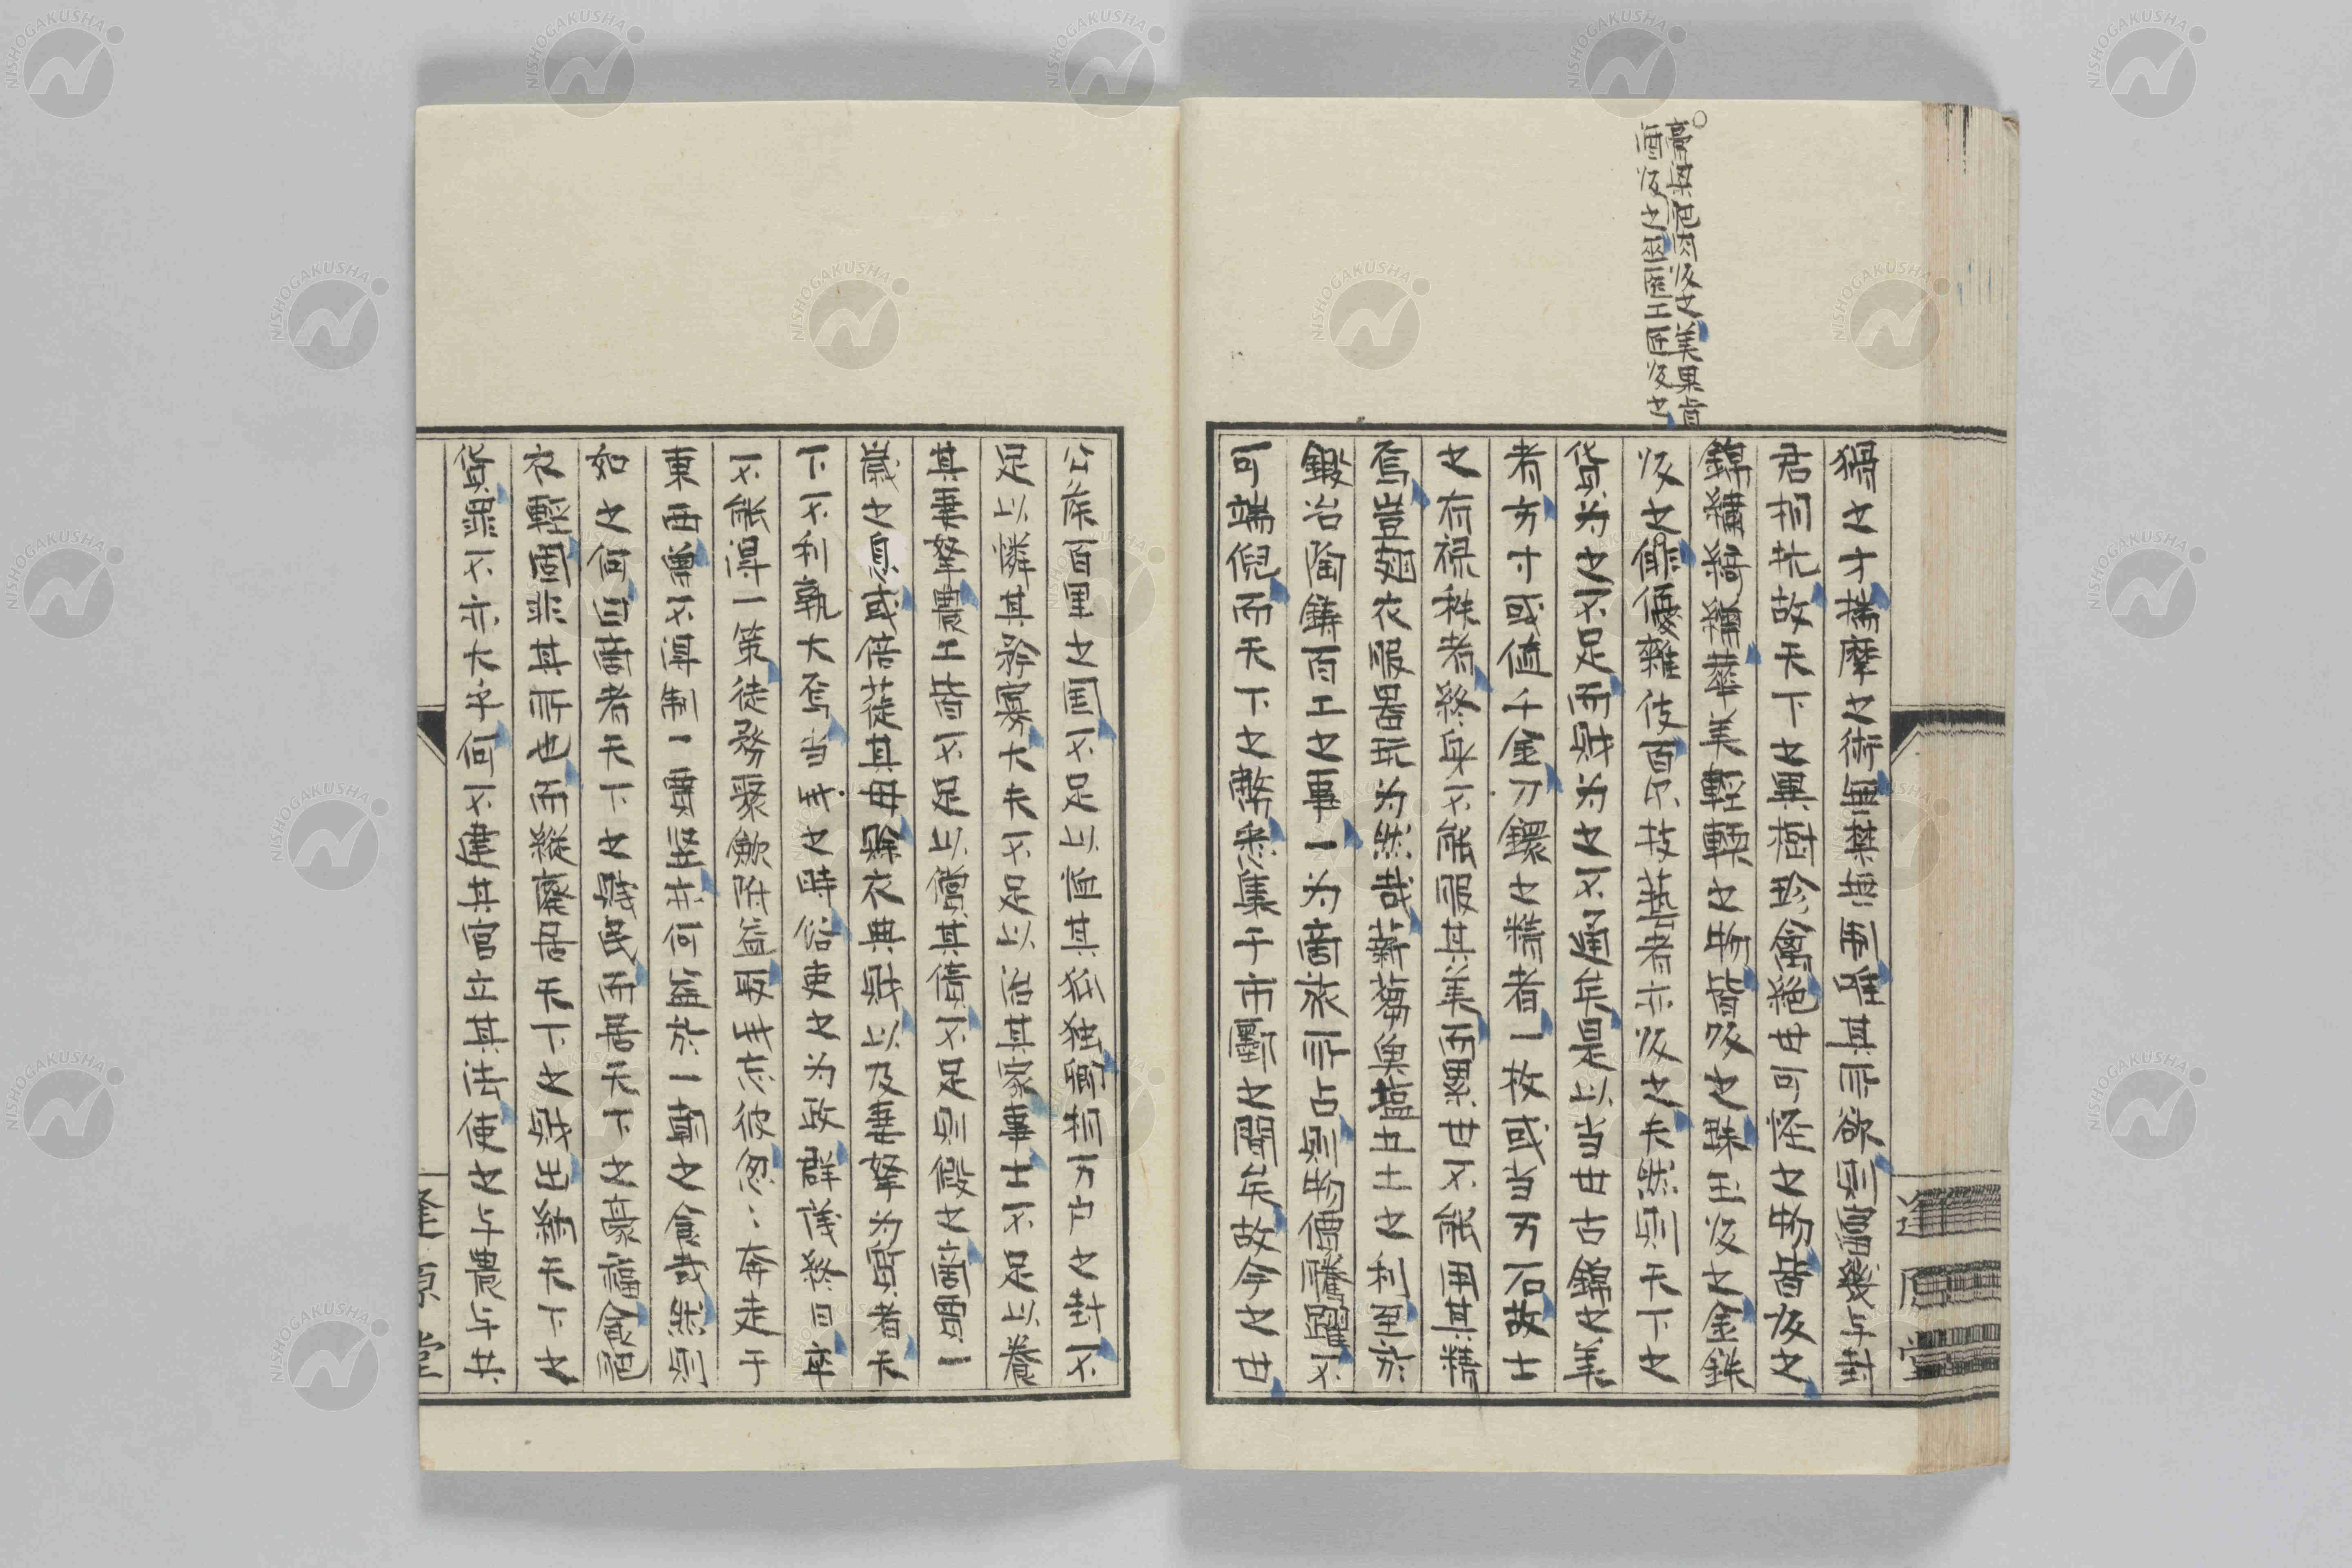 膏粱肥肉收之美果肯
酋收之巫医工匠收之
猗之才揣摩之術無禁無圄唯其所欲則富幾与封
君相抗故天下之異樹珍禽絶世可怪之物皆收之
錦繡綺縠華美輕軟之物皆收之珠玉收之金銀
收之俳優雑伎百尺技藝者亦收之夫然則天下之
貨为之不足而財为之不通矣是以当世古錦之美
者方寸或値千金刀鐶之精者一枚或当万石故士
之有禄秩者終身不能服其美而累世不能用其精
焉豈翅衣服器玩为然哉薪蒭魚塩土之利至於
鍛冶陶鋳百工之事一为商旅所占則物価騰躍不
可端倪而天下之幣悉集于市斷之間矣故今之世
公侯百里之国不足以恤其孤独卿相万户之封不
足以憐其矜寡大夫不足以治其家事士不足以養
其妻孥農工皆不足以償其債不足則假之商賈一
歲之息或倍蓰其母賖衣典財以及妻孥为質者天
下不利孰大焉当此之時俗吏之为政群議終日卒
不能得一策徒務聚歛附益取此忘彼忽々奔走于
東西曾不得制一賈竪亦何益於一朝之食哉然則
如之何曰商者天下之賎民而居天下之豪福食肥
衣輕固非其所也而縱廃居天下之財出納天下之
貨罪不亦大乎何不建其官立其法使之与農与共
逢原堂